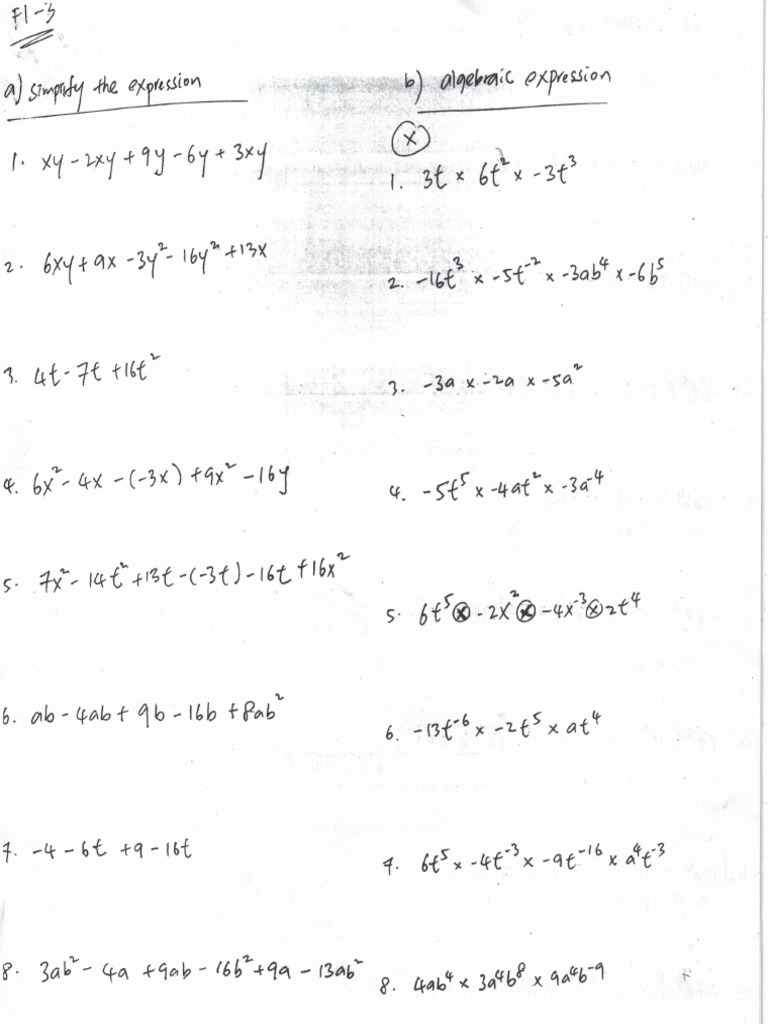 F1-3
a) simplify the expression
1. xy - 2xy + 9y - 6y + 3xy
2. 6xy + 9x - 3y² - 16y² + 13x
3. 4t - 7t + 16t²
4. 6x² - 4x - (-3x) + 9x² - 16y
5. 7x² - 14t² + 13t - (-3t) - 16t + 16x²
6. ab - 4ab + 9b - 16b + 8ab²
7. -4 - 6t + 9 - 16t
8. 3ab² - 4a + 9ab - 16b² + 9a - 13ab²
b) algebraic expression
×
1. 3t × 6t² × -3t³
2. -16t³ × -5t⁻² × -3ab⁴ × -6b⁵
3. -3a × -2a × -5a²
4. -5t⁵ × -4at² × -3a⁻⁴
5. 6t⁵ ⊗ -2x² ⊗ -4x⁻³ ⊗ 2t⁴
6. -13t⁻⁶ × -2t⁵ × at⁴
7. 6t⁵ × -4t⁻³ × -9t⁻¹⁶ × a⁴t⁻³
8. 4ab⁴ × 3a⁴b⁸ × 9a⁴b⁻⁹